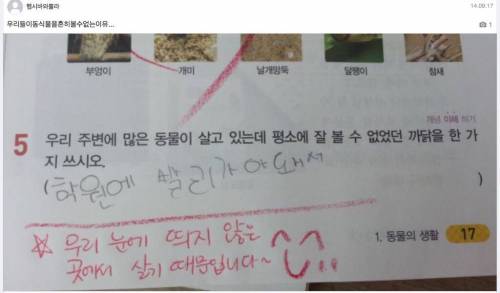 헴시바와물라
14.09.17
우리들이동식물을흔히볼수없는이유...
1
부엉이
개미
날개망둑
달팽이
참새
개념 이해 하기
5 우리 주변에 많은 동물이 살고 있는데 평소에 잘 볼 수 없었던 까닭을 한 가
지 쓰시오.
( 학원에 빨리가야 돼서 )
☆ 우리 눈에 띄지 않는
곳에서 살기 때문입니다~
1. 동물의 생활 17